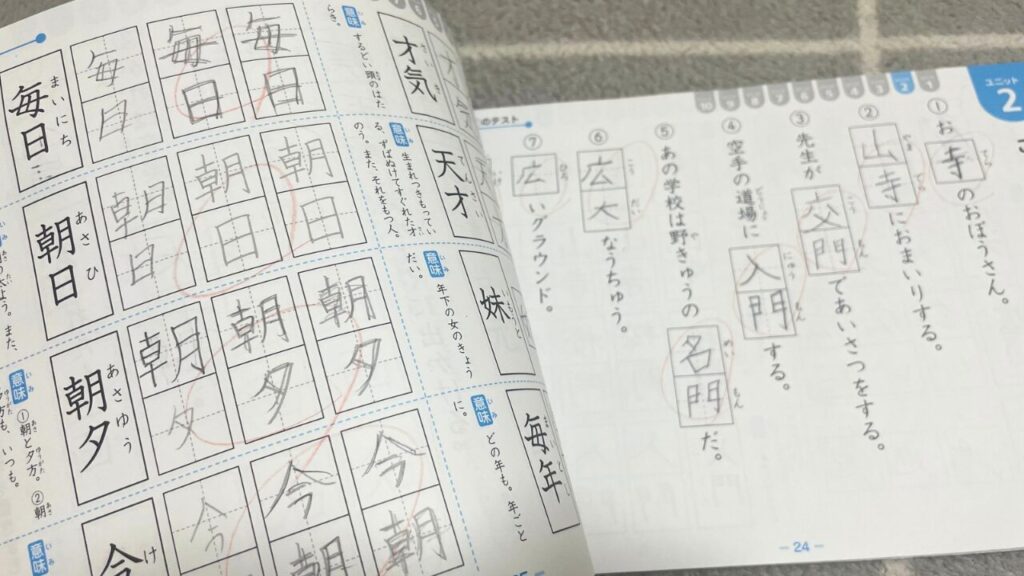 ユニット
2
①お寺のおぼうさん。
②山寺におまいりする。
③先生が交門であいさつをする。
④空手の道場に入門する。
⑤あの学校は野きゅうの名門だ。
⑥広大なうちゅう。
⑦広いグラウンド。
のテスト
24
毎年
意味 どの年も。年ごとに。
妹
意味 年下の女のきょうだい。
天才
意味 生まれつきもっている、ずばぬけてすぐれた才のう。また、それをもつ人。
才気
意味 するどい、頭のはたらき。
毎日 毎日 毎日
毎日
まいにち
朝日 朝日 朝日
朝日
あさひ
朝夕 朝夕 朝夕
朝夕
あさゆう
意味 ①朝と夕方。②朝
も、いつも。
今朝
今朝
今
今
け
意味